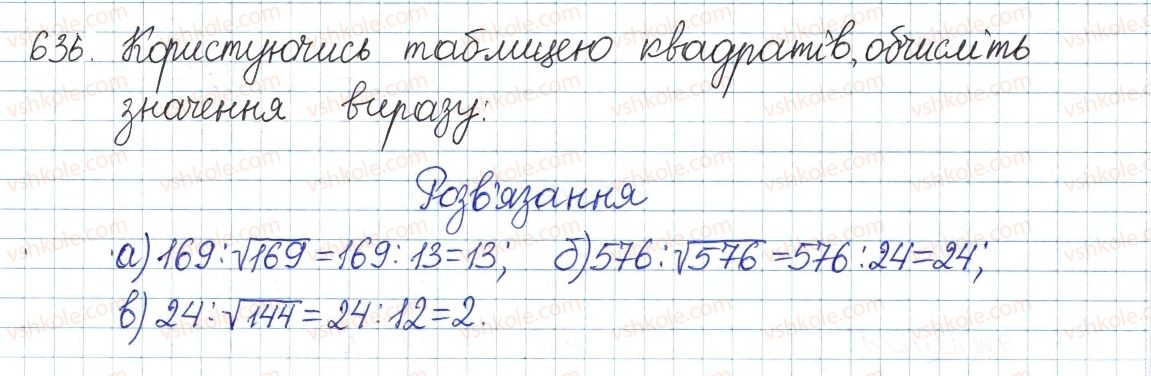 635. Користуючись таблицею квадратів, обчисліть
значення виразу:
Розв'язання
а) 169 : √169 = 169 : 13 = 13; б) 576 : √576 = 576 : 24 = 24;
в) 24 : √144 = 24 : 12 = 2.